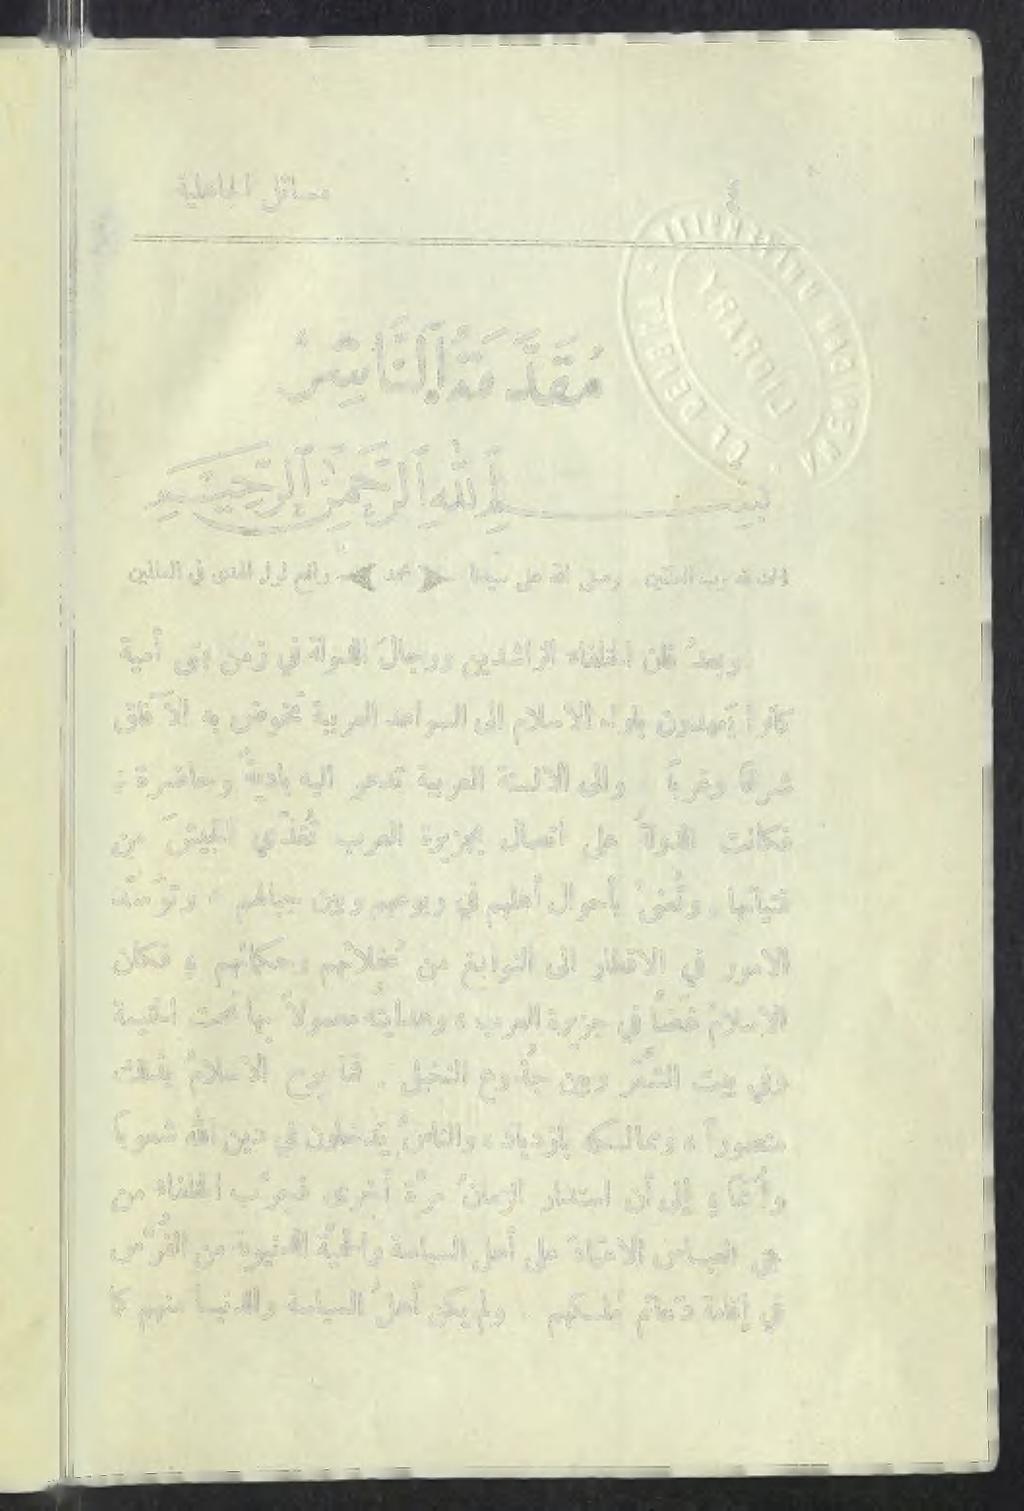 مسائل الجاهلية
مُقَدِّمَةُ النَّاشِرُ
بسم الله الرحمن الرحيم
الحمد لله رب العالمين . وصلى الله على سيدنا محمد رافع لواء الهدى في العالمين
وبعدُ فان الخلفاء الراشدين ورجالَ الدولة في زمن بني أمية
كانوا يَعهدون بلواء الاسلام الى السواعد العربية تخوضُ به الآفاق
شرقاً وغرباً . والى الالسنة العربية تدعو اليه باديةً وحاضرة ؛
فكانت الدولةُ على اتصال بجزيرة العرب تُغذّي الجيشَ من
فتيانها ، وتُعنىٰ بأحوال أهلهم في ربوعهم وبين جبالهم ، وتوَسّد
الامور في الاقطار الى النوابغ من عُقلائهم وحكمائهم ؛ فكان
الاسلامُ غضاً في جزيرة العرب ، وهدايتُه معمولاً بها تحت الخيمة
وفي بيت الشَّعَر وبين جُذوع النخيل . فما برح الاسلامُ
منصوراً ، وممالكه بازدياد ، والناسُ يَدخلون في دين الله شعوباً
وأمماً ؛ إلى أن استدار الزمانُ مرَّة أخرى فجرَّب الخلفاء من
بني العباس الاعتمادَ على أهل السياسة والحيلة الدنيوية من الفُرْس
في إقامة دعائم مُلكهم . ولم يكن أهلُ السياسة والدنيا منهم كا